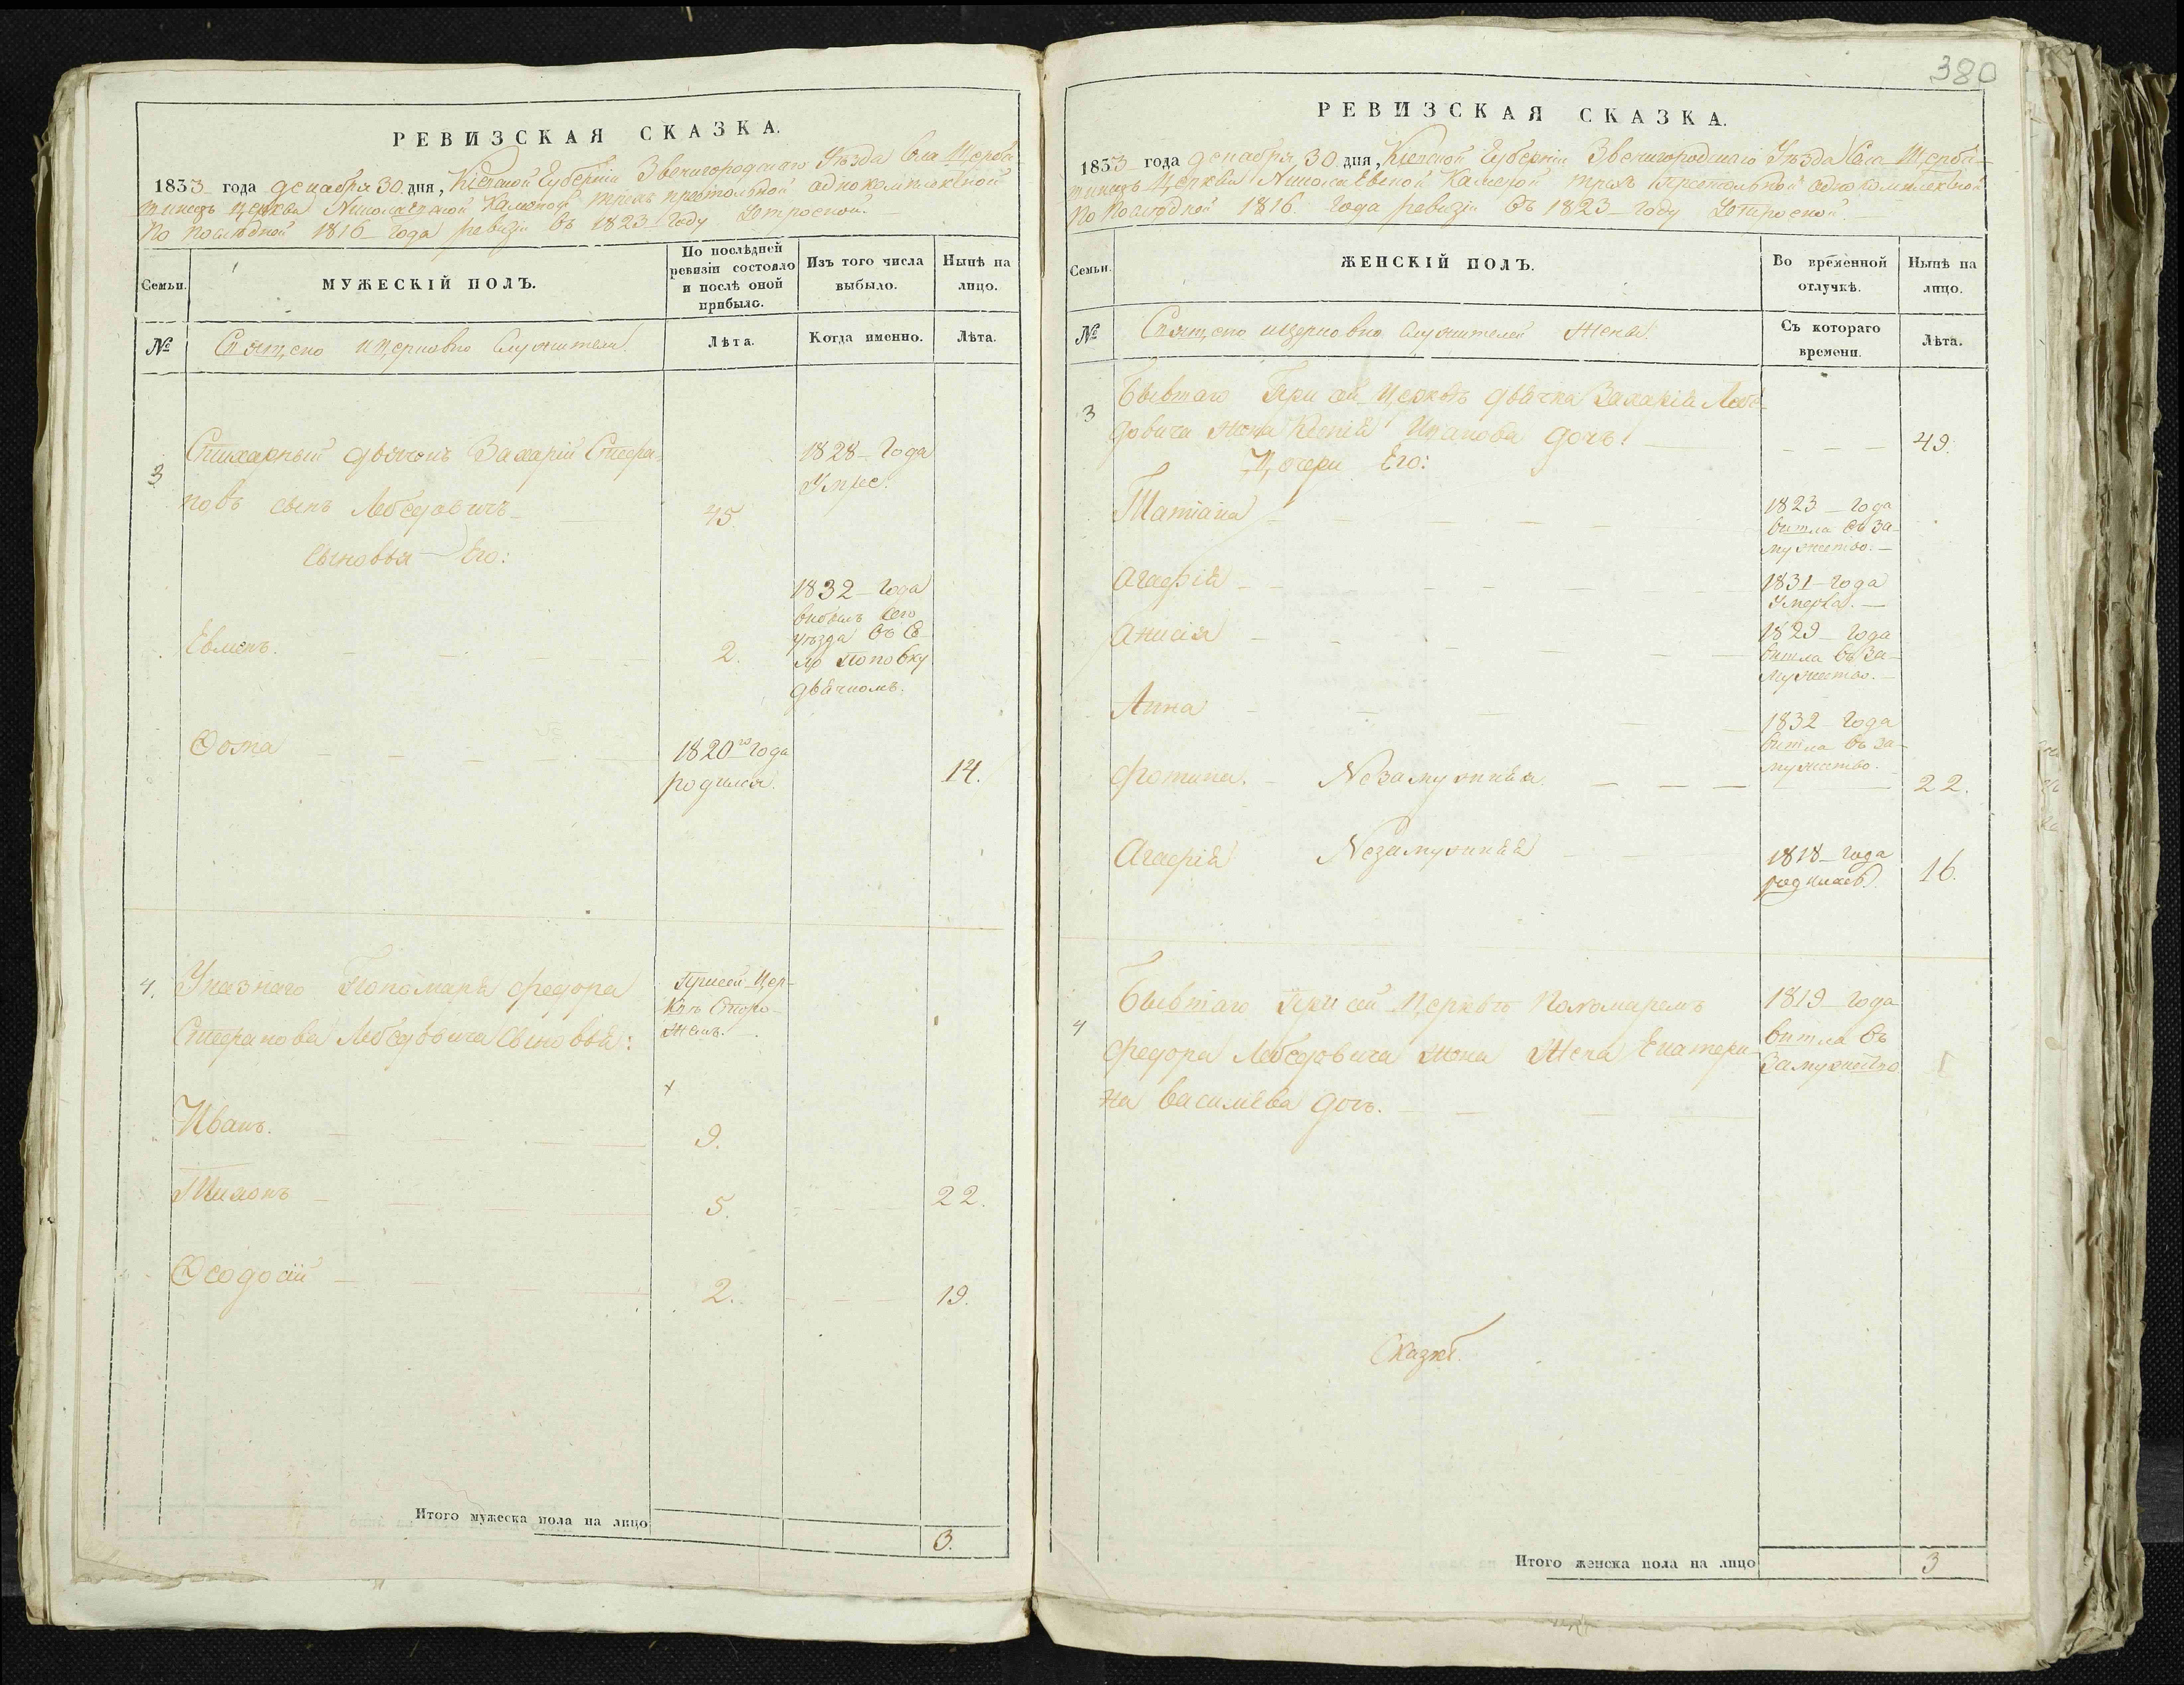 РЕВИЗСКАЯ СКАЗКА.
1833 года декабря 30. дня, Кіевской Губерніи Звенигородского Уѣзда Села Щерба-
тинецъ церкви Николаевской
По послѣдной 1816 года ревизіи въ 1823 году
Семьи.
МУЖЕСКІЙ ПОЛЪ.
По послѣдней
ревизіи состояло
и послѣ оной
прибыло.
Изъ того числа
выбыло.
Нынѣ на
лицо.
№
Священо и церковно Служители.
Лѣта.
Когда именно.
Лѣта.
3
Стихарный дьячокъ Захарій Стефа-
новъ сынъ Лебедовичъ
45.
1828 Года
Умре.
Сыновья Его:
Евменъ.
2.
1832 года
выбылъ сего
уѣзда въ Се-
ло Поповку
дьячкомъ.
Ѳома
1820го года
родился.
14.
4.
Указного Пономаря Федора
Стефанова Лебедовича Сыновья:
При сей Цер-
квѣ Сторо-
жемъ.
х
Иванъ.
9.
Тихонъ
5.
22.
Ѳеодосій
2.
19.
Итого мужеска пола на лицо
3.
380
РЕВИЗСКАЯ СКАЗКА.
1833 года декабря 30 дня, Кіевской Губерніи Звенигородского Уѣзда Села Щерба-
тинецъ Церкви Николаевской трехъ Престольной однокомплектной
По Послѣдной 1816. года ревизіи въ 1823 году
Семьи.
ЖЕНСКІЙ ПОЛЪ.
Во временной
отлучкѣ.
Нынѣ на
лицо.
№
Священо и церковно Служителей Жены.
Съ котораго
времени.
Лѣта.
3
Бывшаго При сей Церквѣ дьячка Захарія Лебе-
довича жена Ксенія Иванова дочь!
49.
Дочери Его:
Татіана
1823 года
вишла въ За-
мужество.
Агафія
1831 года
Умерла.
Анисія
1829 года
вишла въ За-
мужество.
Анна
1832 года
вишла въ за-
мужество.
Фотина. Незамужняя
22.
Агафія Незамужняя
1818 года
родилась.
16.
4
Бывшаго При сей Церквѣ Пономаремъ
Федора Лебедовича жена Жена Екатери-
на Василіева дочь.
1819 года
вишла въ
Замужество
Сказкѣ.
Итого женска пола на лицо
3